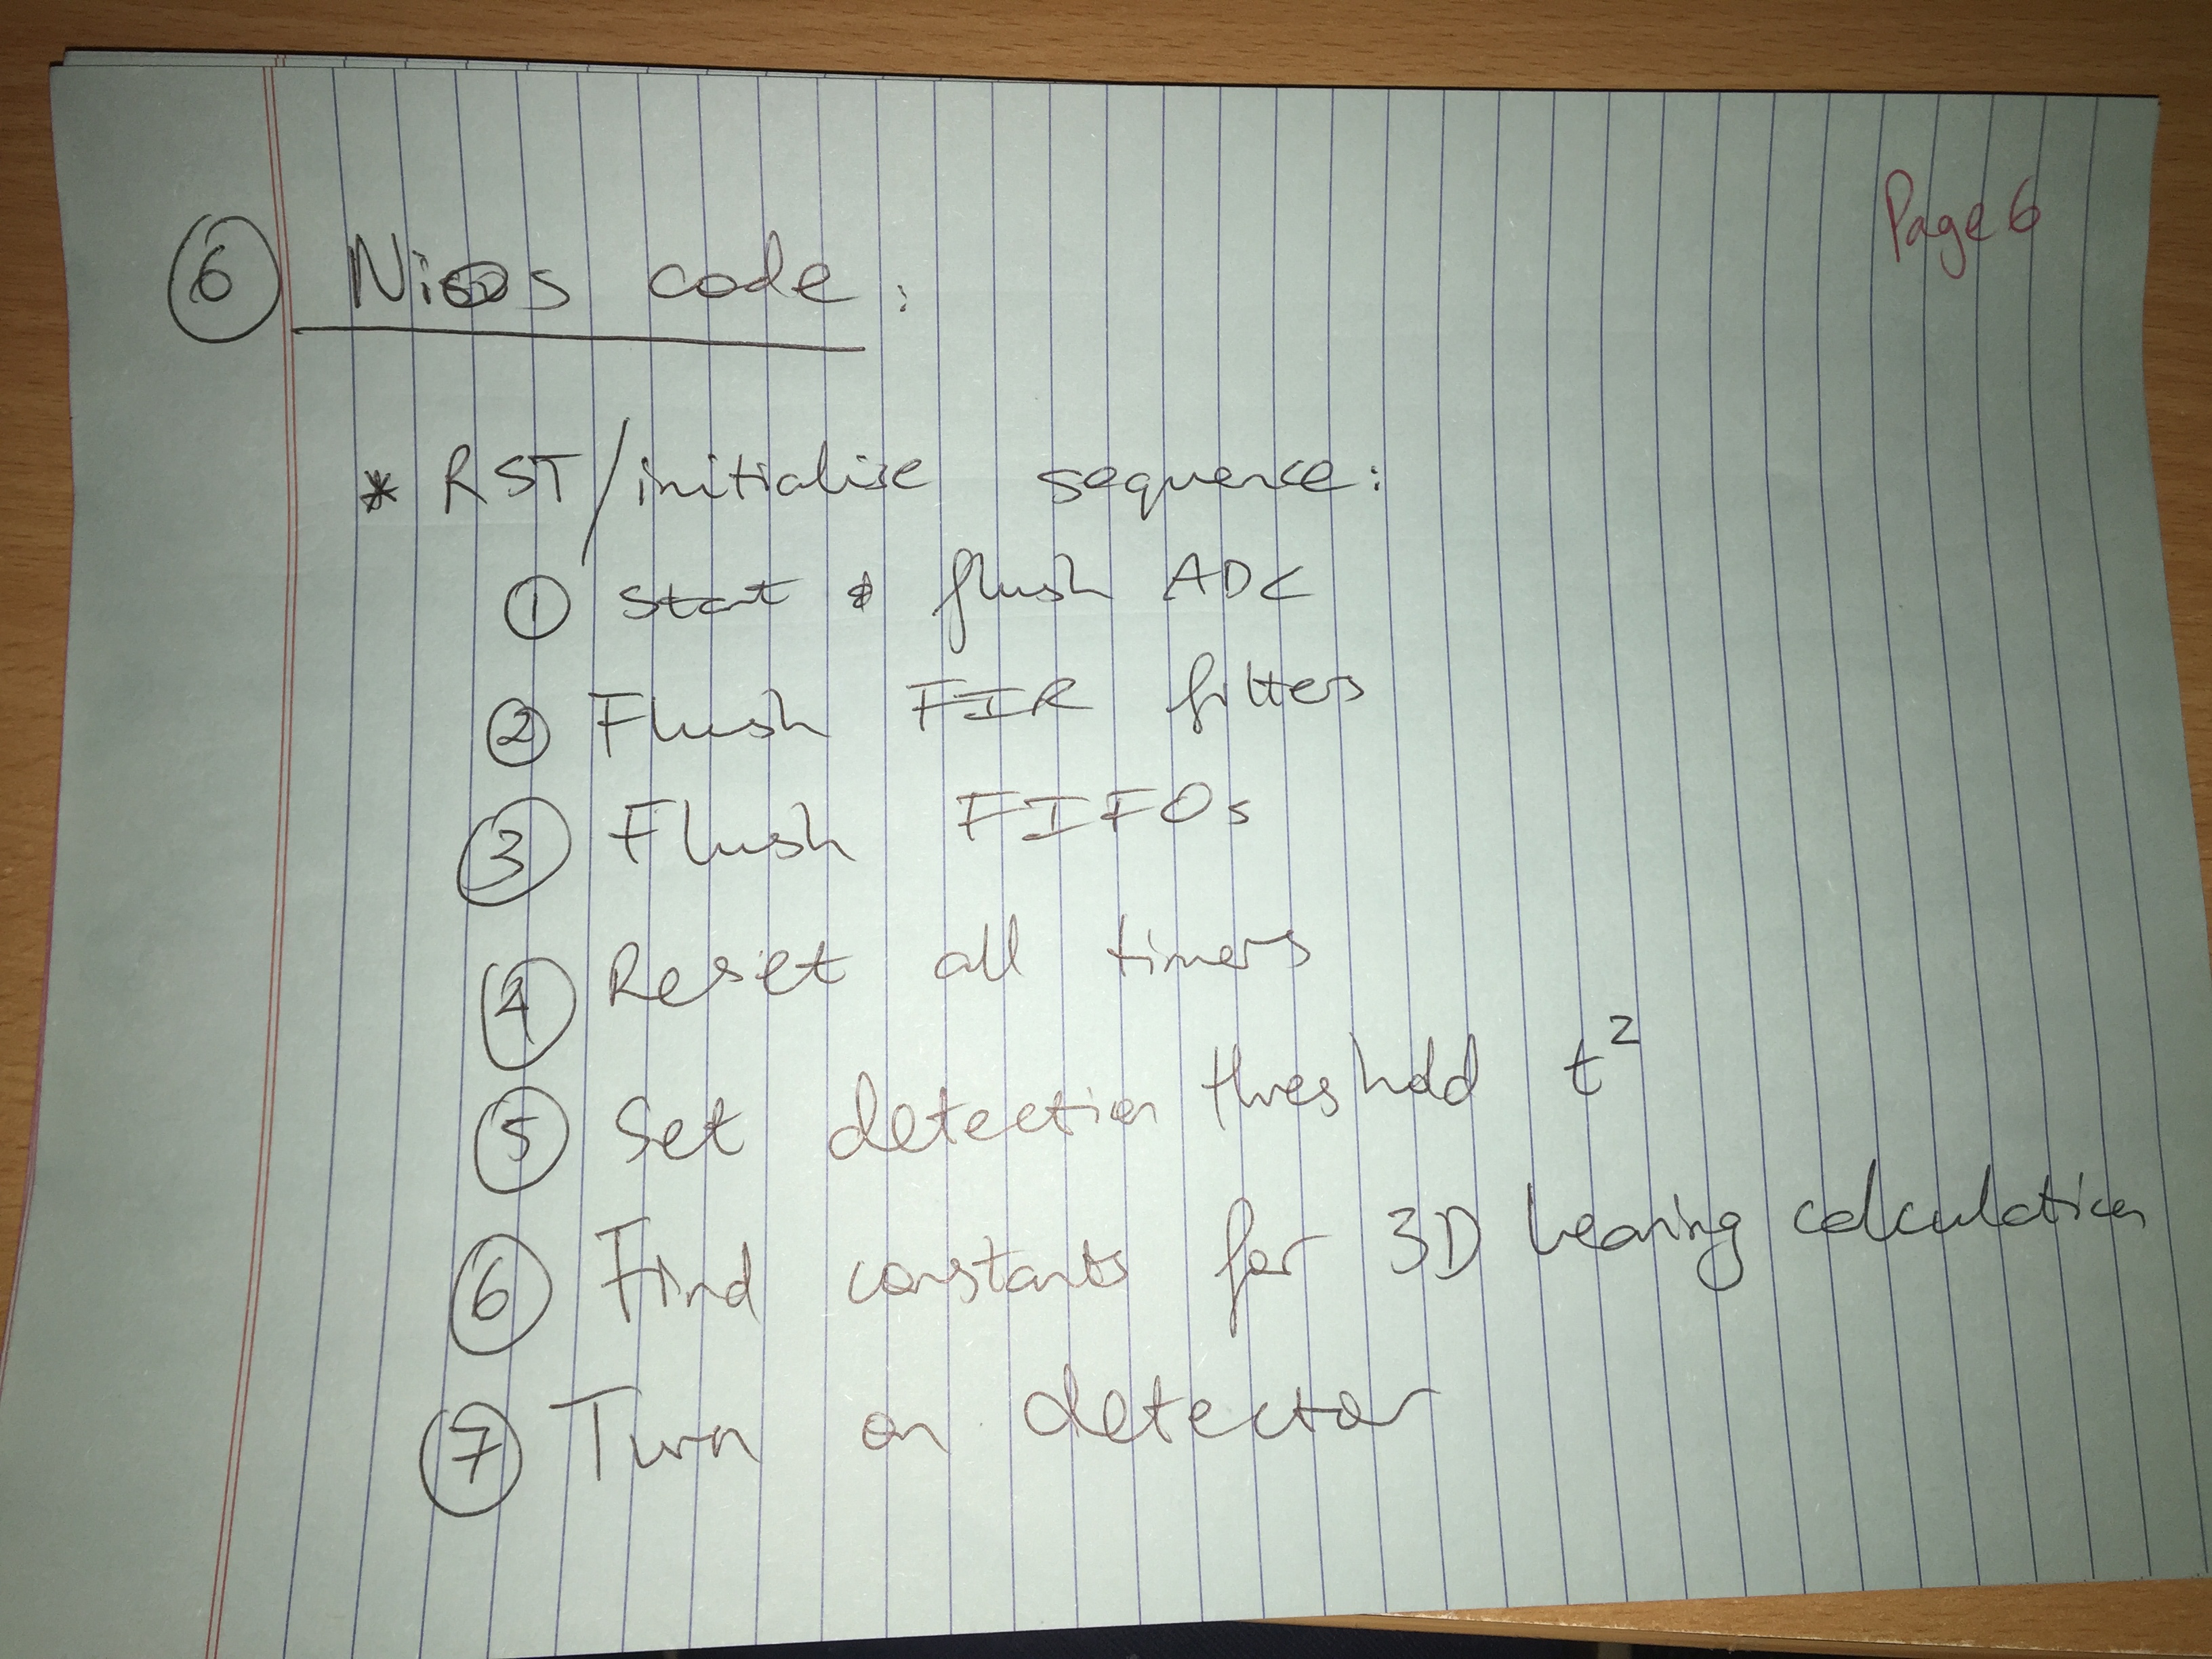 Page 6
⑥ Nios code:
* RST/initialise sequence:
① start & flush ADC
② Flush FIR filters
③ Flush FIFOs
④ Reset all timers
⑤ Set detection threshold t²
⑥ Find constants for 3D bearing calculation
⑦ Turn on detector